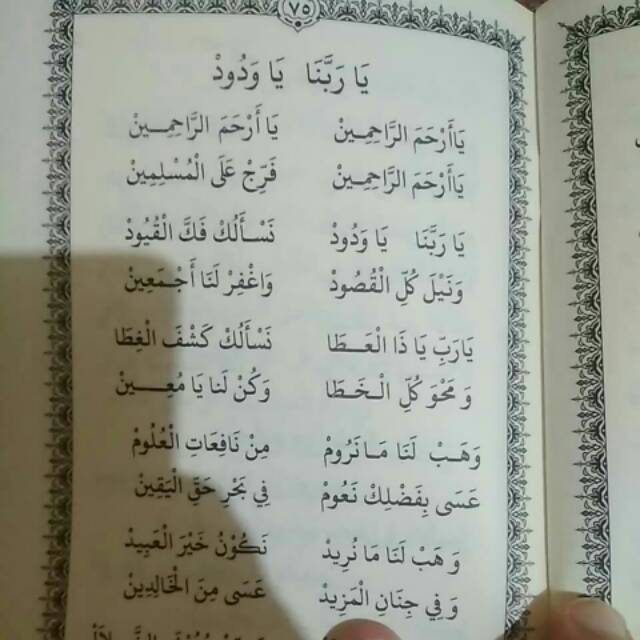 ٧٥
يَا رَبَّنَا يَا وَدُودْ
يَاأَرْحَمَ الرَّاحِمِـيـنْ يَا أَرْحَمَ الرَّاحِمِـيـنْ
يَاأَرْحَمَ الرَّاحِمِـيـنْ فَرِّجْ عَلَى الْمُسْلِمِينْ
يَا رَبَّنَا يَا وَدُودْ نَسْـأَلُكْ فَكَّ الْقُيُودْ
وَنَيْلَ كُلِّ الْقُصُودْ وَاغْفِرْ لَنَا أَجْـمَعِينْ
يَارَبِّ يَا ذَا الْعَـطَا نَسْأَلُكْ كَشْفَ الْغِطَا
وَ مَحْوَ كُلِّ الْـخَـطَا وَكُنْ لَنا يَا مُعِـيـنْ
وَهَـبْ لَنَا مَـا نَرُومْ مِنْ نَافِعَاتِ الْعُلُومْ
عَسَى بِفَضْلِكْ نَعُومْ فِي بَحْرِ حَقِّ الْيَقِينْ
وَ هَبْ لَنَا مَا نُرِيدْ نَكُوْنْ خَيْرَ الْعَبِيدْ
وَ فِي جِنَانِ الْمَزِيدْ عَسَى مِنَ الْخَالِدِينْ